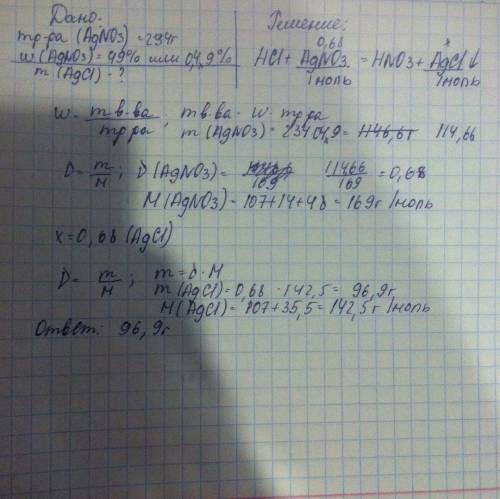 Дано:
mр-ра (AgNO3) = 234г
w (AgNO3) = 49% или 0,4,9%
m (AgCl) - ?
Решение:
0,68 x
HCl + AgNO3 = HNO3 + AgCl↓
1моль 1моль
w = m в-ва / mр-ра ; m в-ва = w · mр-ра
m (AgNO3) = 234 · 0,49 = 114,66
D = m/M ; D (AgNO3) = 114,66/169 = 0,68
M (AgNO3) = 107+14+48 = 169г/моль
x = 0,68 (AgCl)
D = m/M ; m = D · M
m (AgCl) = 0,68 · 142,5 = 96,9г
M (AgCl) = 107 + 35,5 = 142,5 г/моль
Ответ: 96,9г